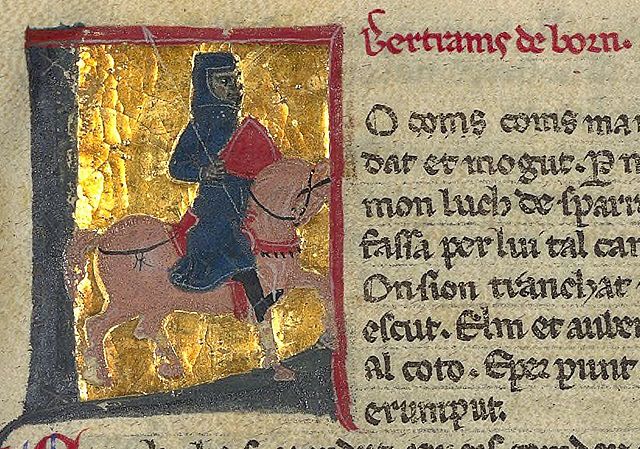 Bertrams de born.
O coms coms man
dat et mogut. P
mon luch de sparr
fassa per lui tal can
Onsion tranchat
escut. Elm et auber
al coto. Eper punt
erumput.